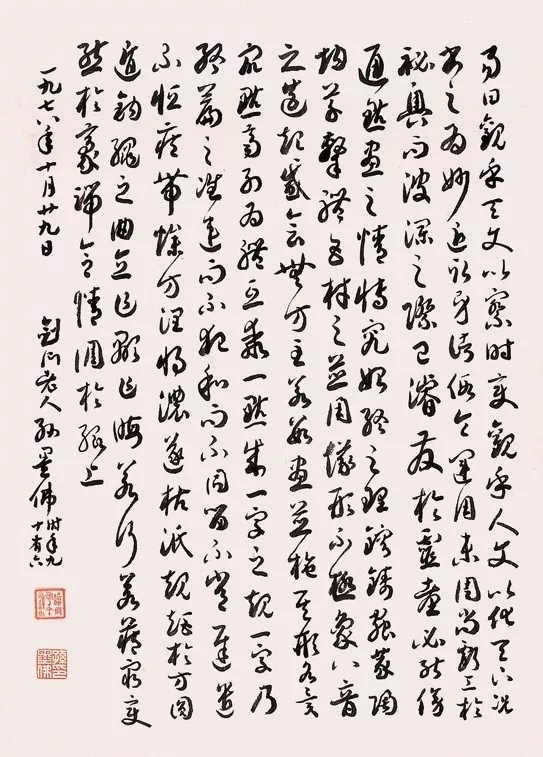 易曰觀乎天文以察時變觀乎人文以化天下況
書之為妙近取諸身假令運用未周尚虧工於
秘奧而波瀾之際已濬發於靈臺必能傍
通點畫之情博究始終之理鎔鑄蟲篆陶
均草隸體五材之並用儀形不極象八音
之迭起感會無方至若數畫並施其形各異
眾點齊列為體互乖一點成一字之規一字乃
終篇之準違而不犯和而不同留不常遲遣
不恒疾帶燥方潤將濃遂枯泯規矩於方圓
遁鉤繩之曲直乍顯乍晦若行若藏窮變
態於豪端合情調於紙上
一九七八年十月廿九日 劍門老人孫墨佛時年九十有六